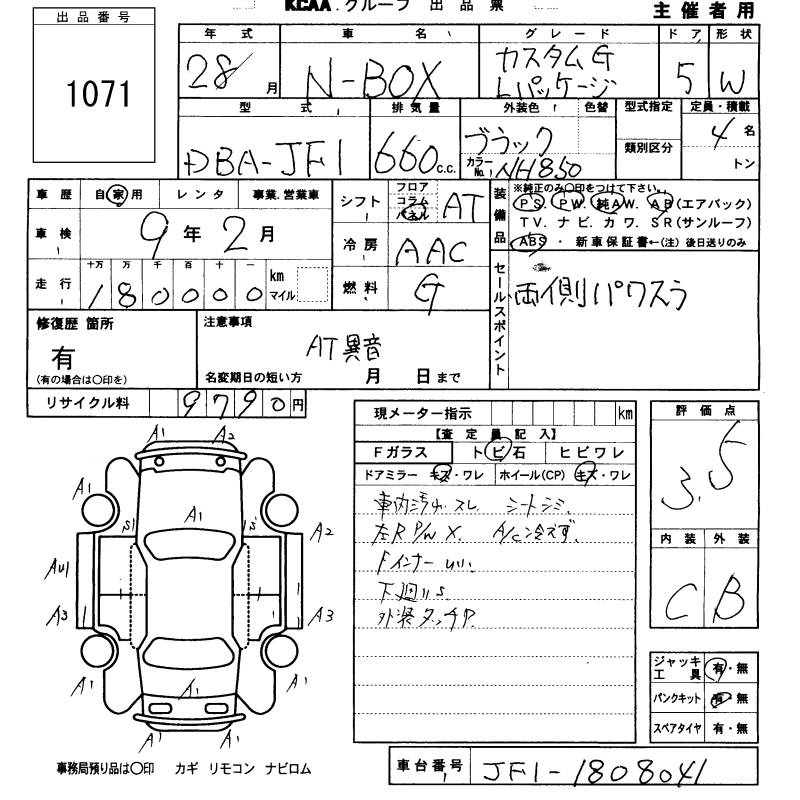 KCAA.グループ 出品票
主催者用
出品番号
1071
年式 車名 グレード ドア 形状
28 月 N-BOX カスタムG Lパッケージ 5 W
型式 排気量 外装色 色替 型式指定 定員・積載
DBA-JF1 660 c.c. ブラック カラーNo. NH850 類別区分 4 名 トン
車歴 自家用 レンタ 事業.営業車
シフト フロア コラム パネル AT
装備品
※純正のみ○印をつけて下さい。
PS. PW. 純AW. AB(エアバック)
TV. ナビ. カワ. SR(サンルーフ)
ABS ・ 新車保証書←(注) 後日送りのみ
車検 9年2月
冷房 AAC
走行 十万 万 千 百 十 一
180000 km マイル
燃料 G
セールスポイント
両側パワスラ
修復歴 箇所
有
(有の場合は○印を)
注意事項
AT異音
名変期日の短い方 月 日まで
リサイクル料 9790円
現メーター指示 km
【査定員記入】
Fガラス トビ石 ヒビワレ
ドアミラー キズ・ワレ ホイール(CP) キズ・ワレ
車内汚れ スレ シートシミ
左R P/W X. A/C冷えず.
Fインナー
下廻りS
外装タッチP
評価点
3.5
内装 外装
C B
A1 A2
A1
A1
S1 S1
A2
AU1
A3 A3
A1 A1 A1
A1 A1
ジャッキ工具 有・無
パンクキット 有・無
スペアタイヤ 有・無
事務局預り品は○印 カギ リモコン ナビロム
車台番号 JF1-1808041